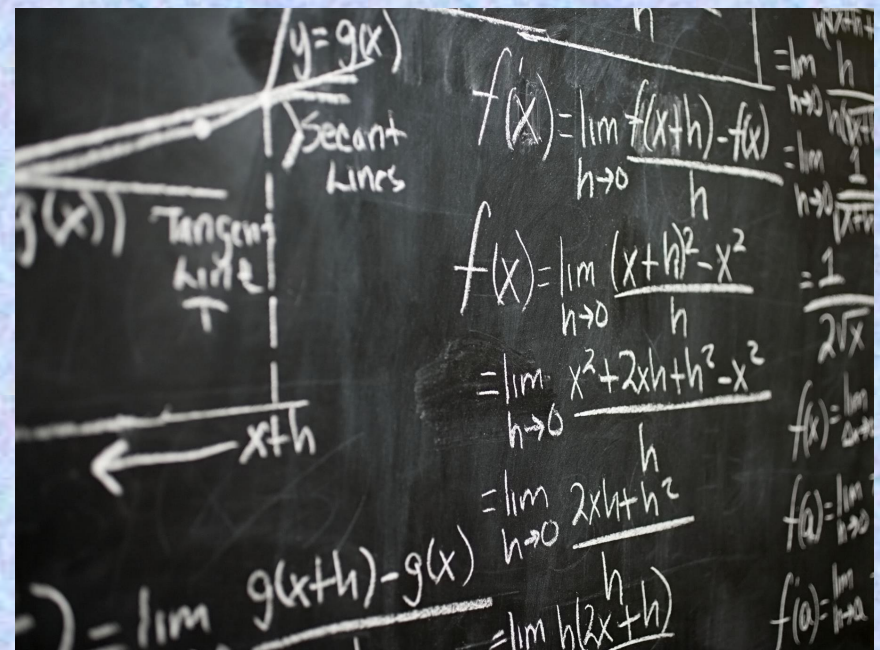 y=g(x)
Secant
Lines
g(x))
Tangent
Line
T
x+h
lim g(x+h)-g(x)
h
f'(x)=lim f(x+h)-f(x)
h→0 h
f(x)=lim (x+h)²-x²
h→0 h
=lim x²+2xh+h²-x²
h→0 h
=lim 2xh+h²
h→0 h
=lim h(2x+h)
=lim h
h→0
=lim 1
h→0
=1
2√x
f(x)=lim
f(a)=lim
h→0
f'(a)=lim
h→a